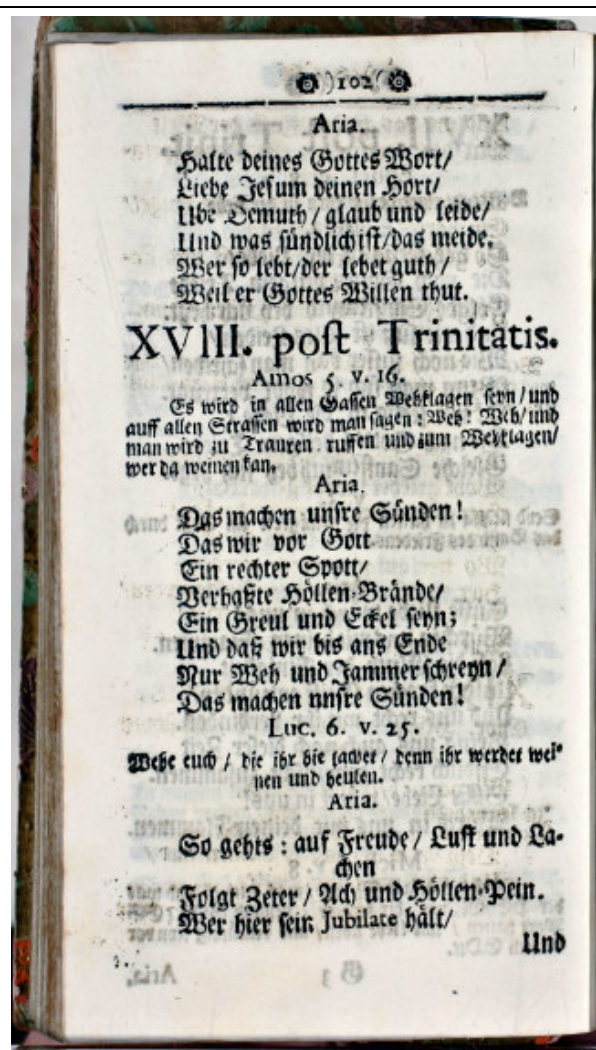 )102(
Aria.
Halte deines Gottes Wort/
Liebe Jesum deinen Hort/
Ube Demuth / glaub und leide/
Und was sündlich ist/das meide.
Wer so lebt/der lebet guth /
Weil er Gottes Willen thut.
XVIII. post Trinitatis.
Amos 5. v. 16.
Es wird in allen Gassen Wehklagen seyn / und
auff allen Strassen wird man sagen : Weh! Weh/ und
man wird zu Trauren ruffen und zum Wehklagen/
wer da weinen kan.
Aria.
Das machen unsre Sünden!
Das wir vor Gott
Ein rechter Spott/
Verhaßte Höllen-Brände/
Ein Greul und Eckel seyn;
Und daß wir bis ans Ende
Nur Weh und Jammer schreyn /
Das machen nnsre Sünden!
Luc. 6. v. 25.
Wehe euch / die ihr hie lachet / denn ihr werdet wei-
nen und heulen.
Aria.
So gehts : auf Freude / Lust und La-
chen
Folgt Zeter / Ach und Höllen-Pein.
Wer hier sein Jubilate hält/
Und